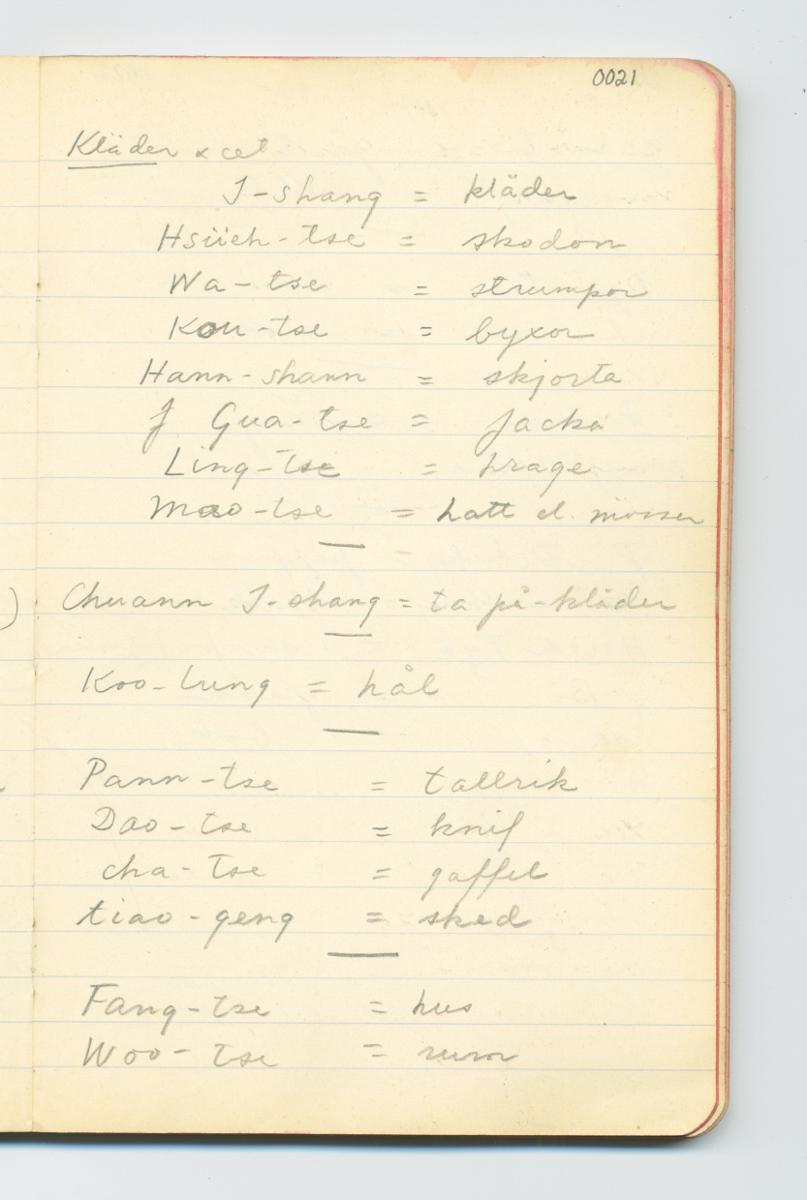 0021
Kläder & cet
I-shang = kläder
Hsüeh-tse = skodon
Wa-tse = strumpor
Kou-tse = byxor
Hann-shann = skjorta
J Gua-tse = Jacka
Ling-tse = krage
Mao-tse = hatt el. mössor
Chuann I-shang = ta på-kläder
Koo-lung = hål
Pann-tse = tallrik
Dao-tse = knif
cha-tse = gaffel
tiao-geng = sked
Fang-tse = hus
Woo-tse = rum